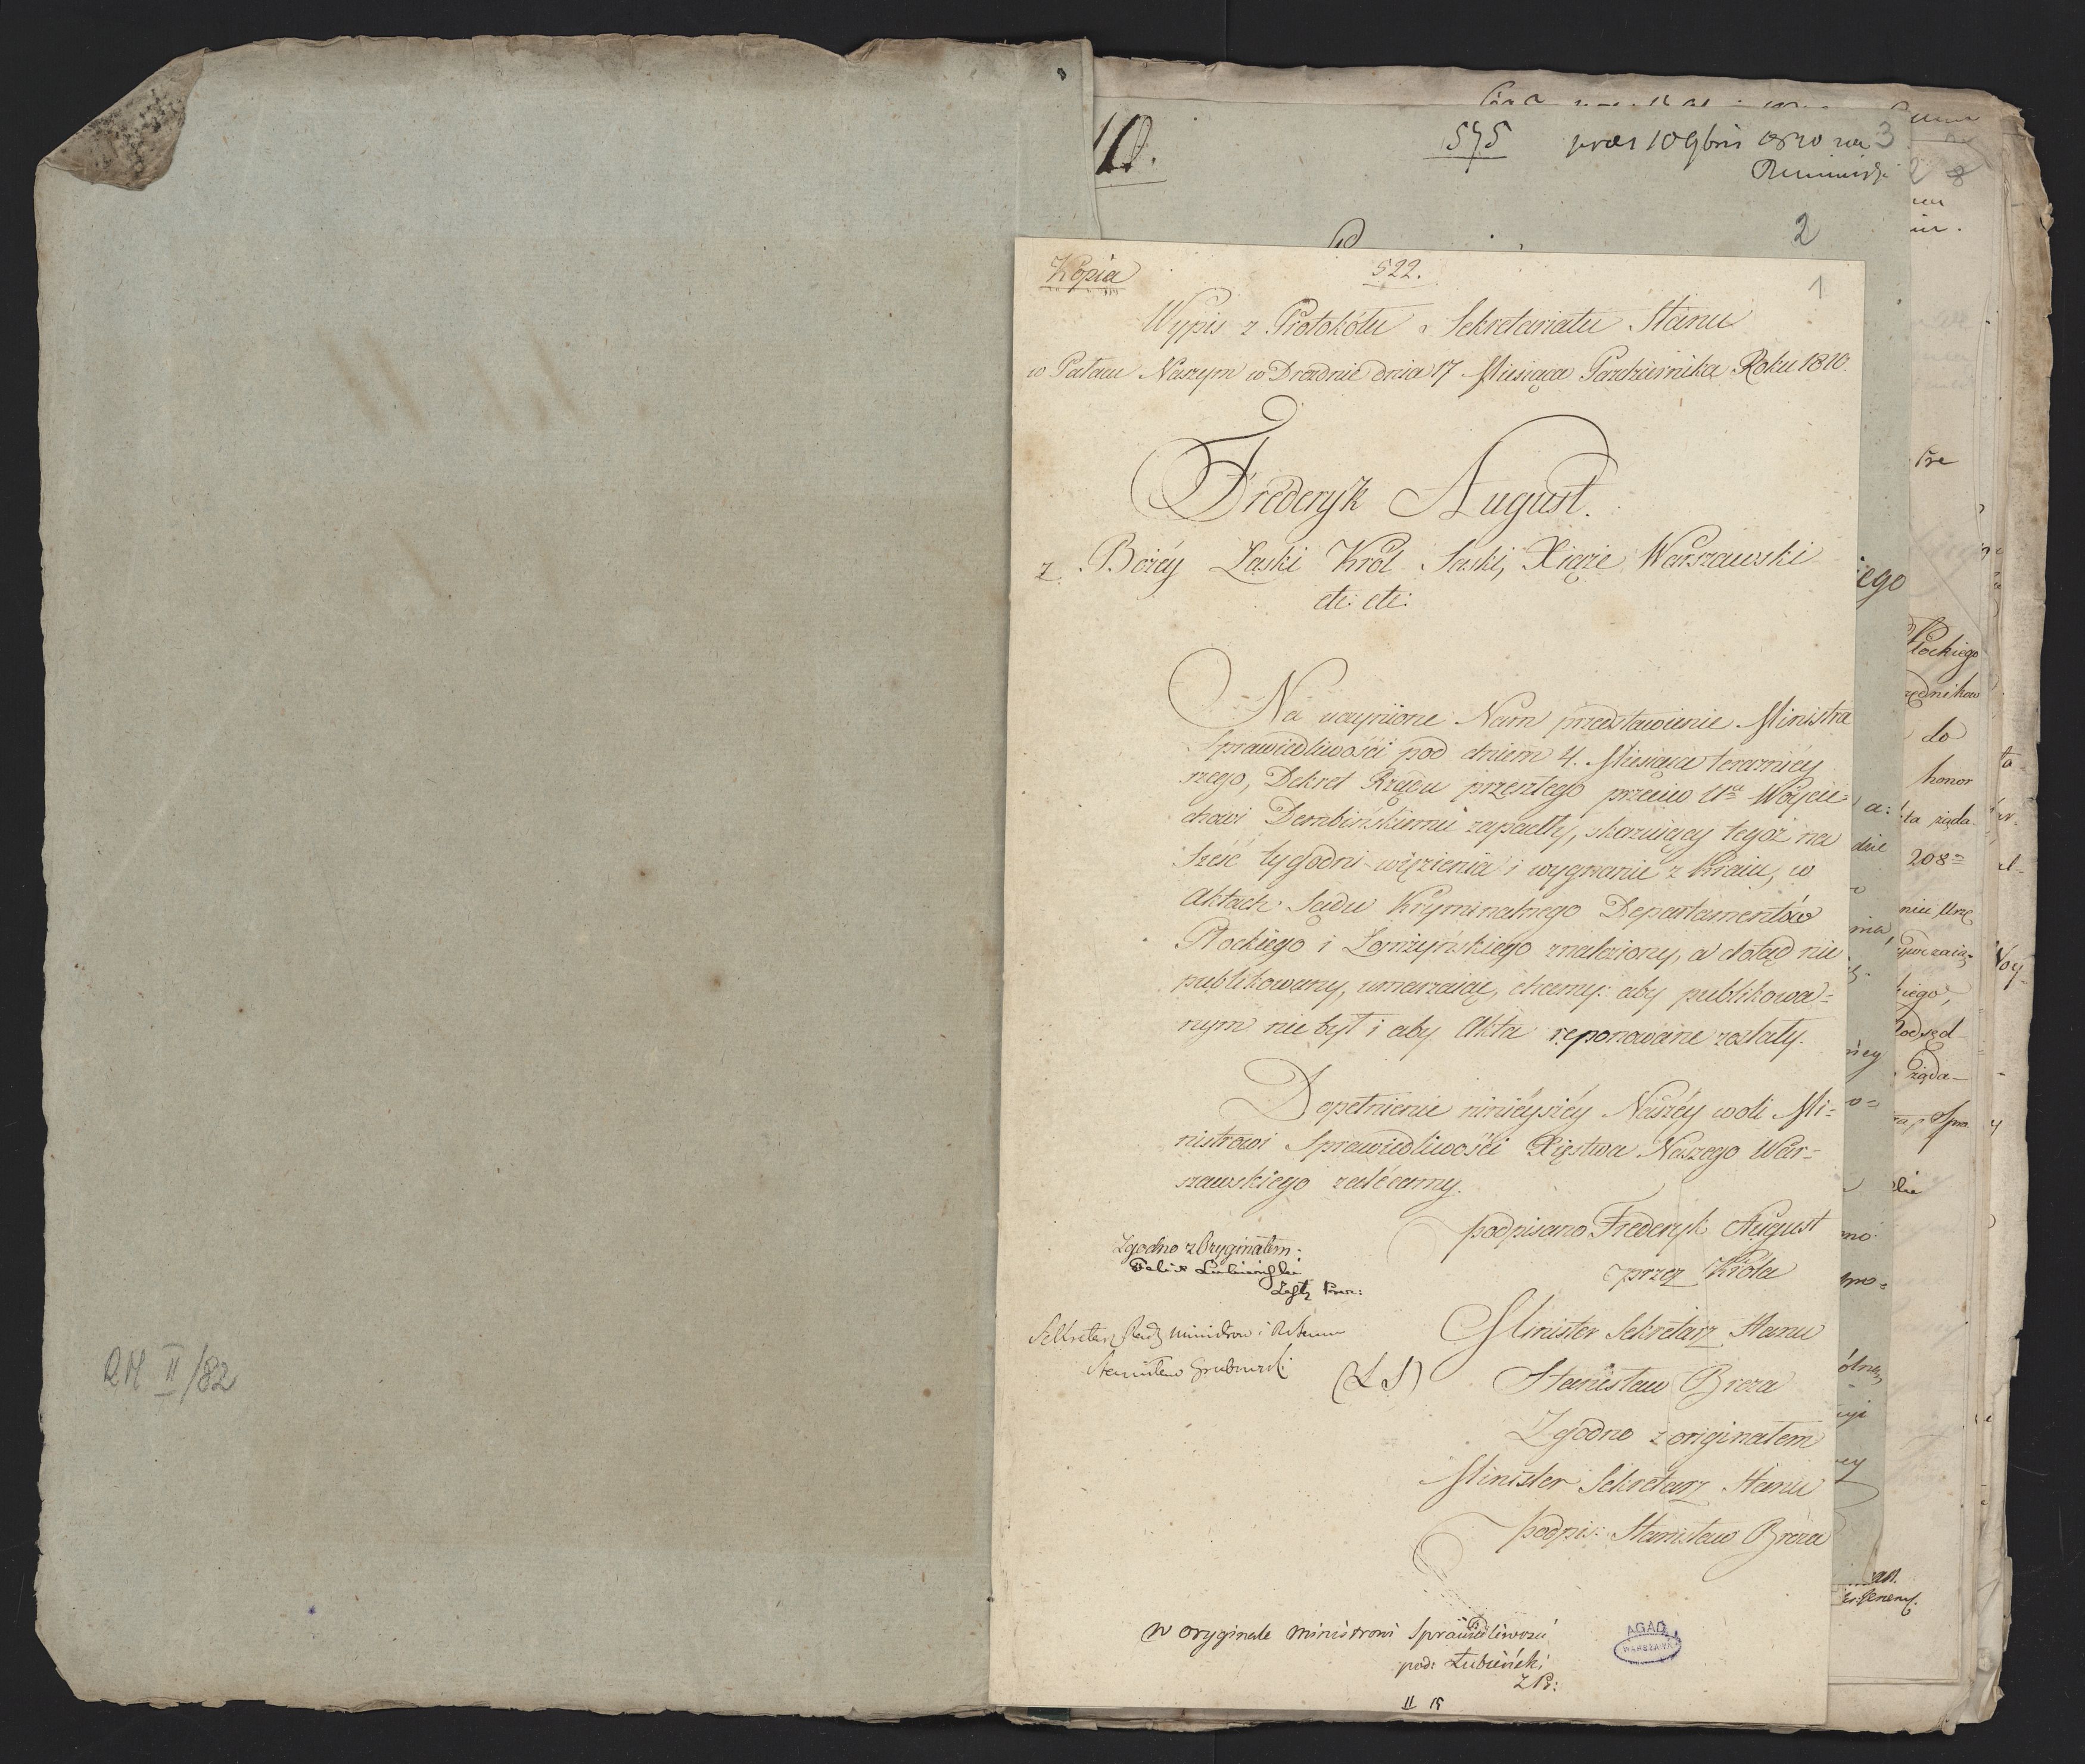 10.
575 praes 10 9bris 1810 na 3
2
Kopia
522.
1
Wypis z Protokółu Sekretariatu Stanu
w Pałacu Naszym w Dreźnie dnia 17 Miesiąca Pazdziernika Roku 1810.
Frederyk August.
z Bożéy Łaski Król Saski, Xiąże Warszawski
etc: etc:
Na uczynione Nam przedstawienie Ministra
Sprawiedliwości pod dniem 4. Miesiąca teraznieÿ
szego, Dekret Rządu przeszłego przeciw Ur. Woÿcie-
chowi Dembińskiemu zapadły, skazuiący tegoż na
sześć tygodni więzienia i wygnanie z Kraiu, w
Aktach Sądu Kryminalnego Departamentów
Płockiego i Łomżyńskiego znaleziony, a dotąd nie
publikowany, umarzaiąc, chcemy: aby publikowa=
nym nie był i aby Akta reponowane zostały.
Dopełnienie ninieÿszéy Naszéy woli Mi=
nistrowi Sprawiedliwości Xięstwa Naszego War=
szawskiego zalécamy.
podpisano Frederyk August
przez Króla
Minister Sekretarz Stanu
(L S) Stanisław Breza
Zgodno z originałem
Minister Sekretarz Stanu
podpis: Stanisław Breza
Zgodno z Oryginałem:
Felix Lubienski
Zastę Preze:
Sekretarz Rady Ministrow i Stanu
Stanisław Grabowski
w oryginale Ministrowi Sprawiedliwości
pod: Łubieński
Z P:
II 15
AGAD
WARSZAWA
RM II/82
iego
Płockiego
do
honor
208